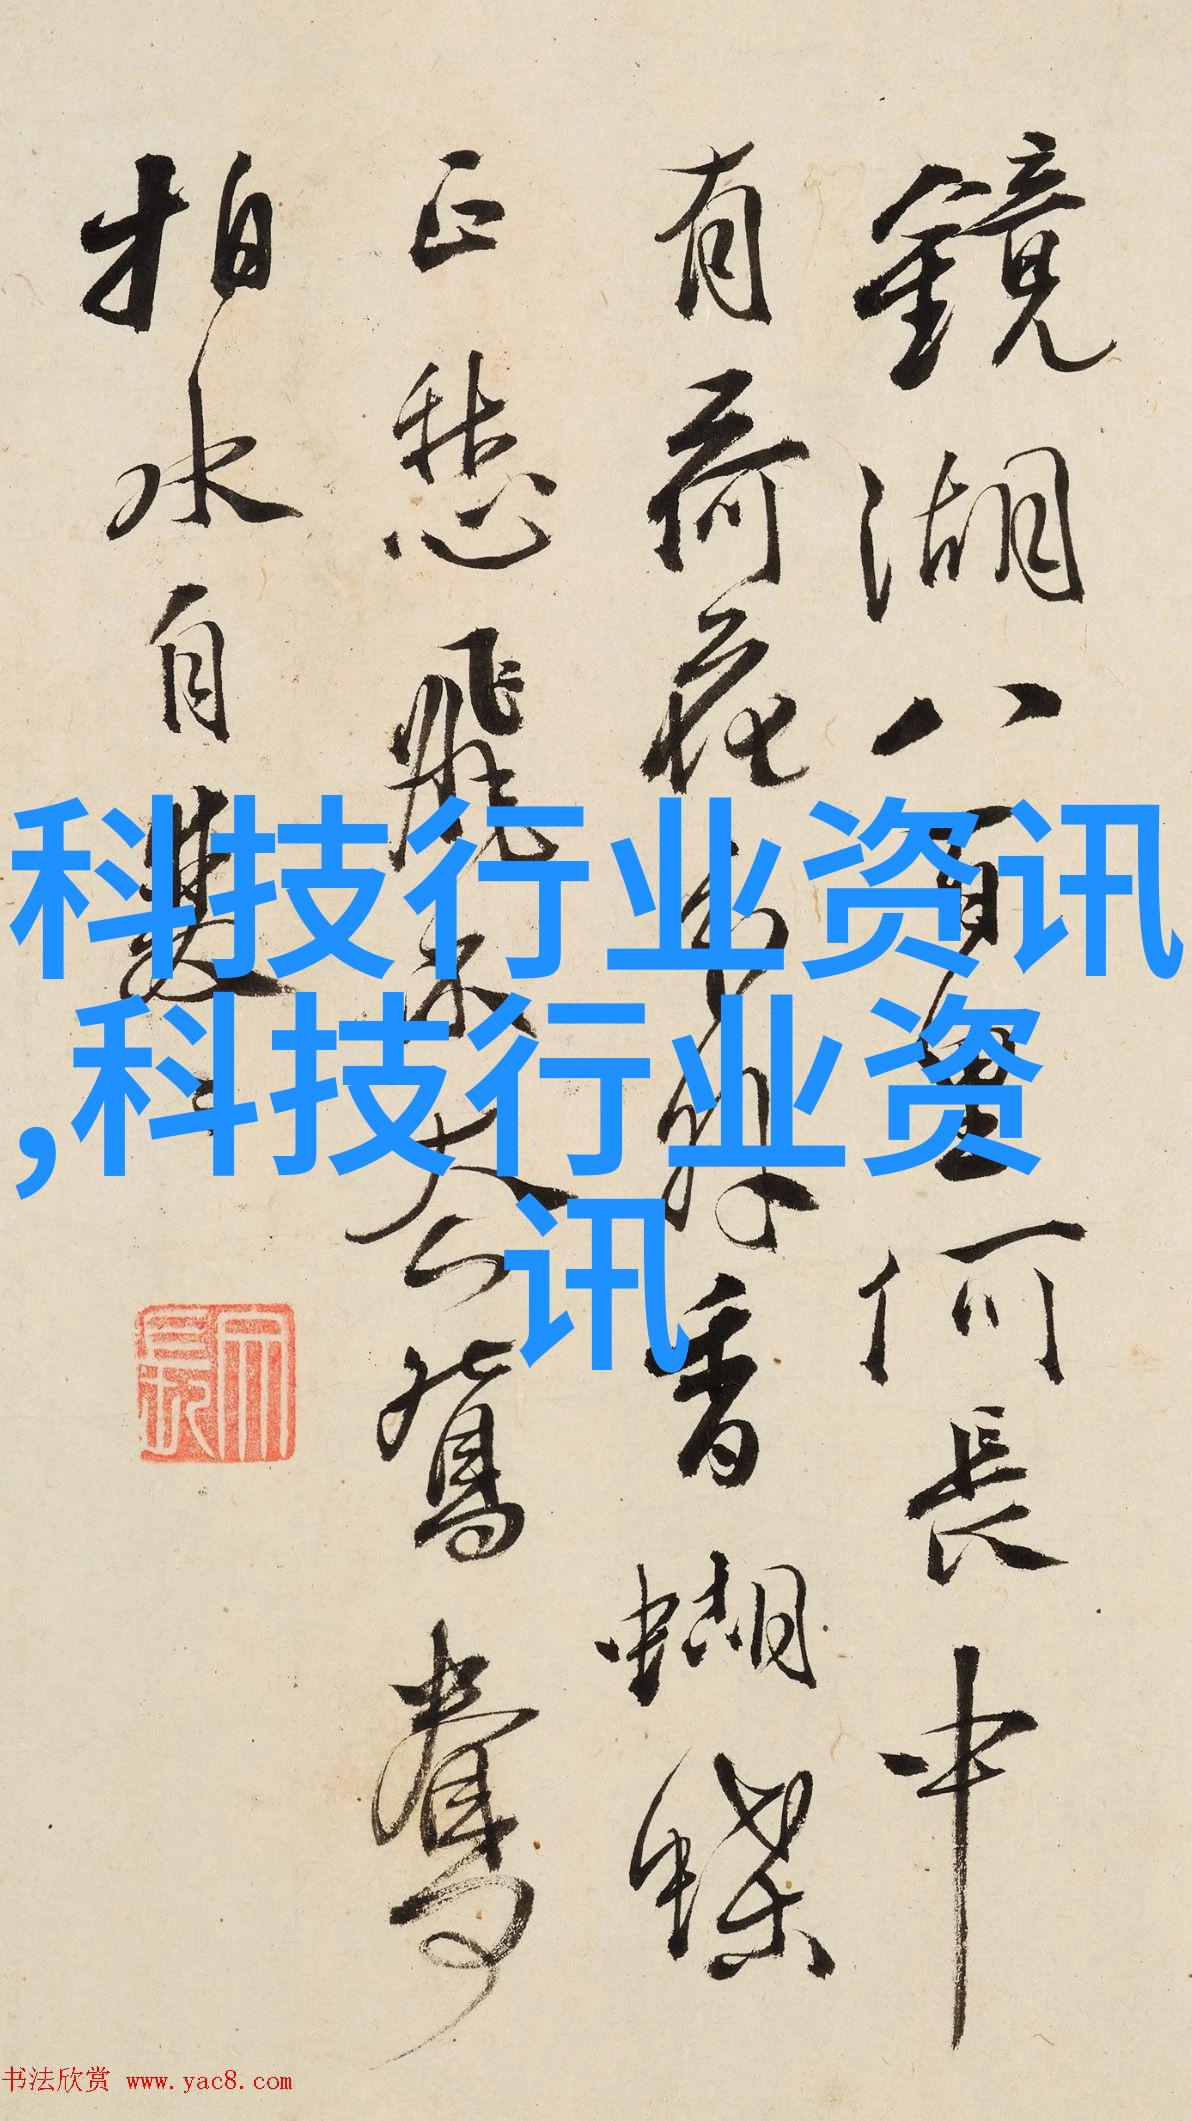 鏡湖八百里何長中
有荷花分外香蝴蝶
正愁飛不鴛鴦
拍水自雙〻
科技行业资讯
,科技行业资
讯
书法欣赏 www.yac8.com